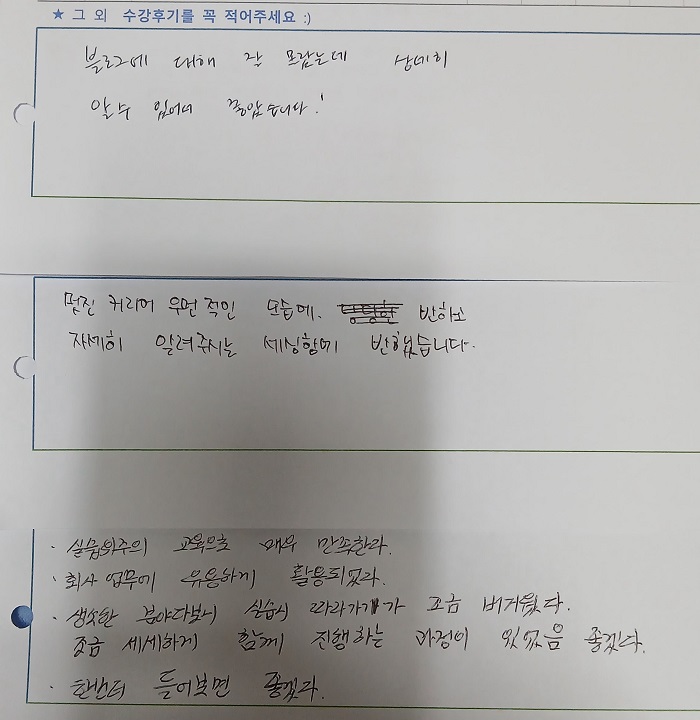 ★ 그 외 수강후기를 꼭 적어주세요 :)
블로그에 대해 잘 몰랐는데 상세히
알 수 있어서 좋았습니다!
멋진 커리어 우먼적인 모습에. 반하고
자세히 알려주시는 세심함에 반했습니다.
· 실습위주의 교육으로 매우 만족한다.
· 회사 업무에 유용하게 활용되었다.
· 생소한 분야다보니 실습시 따라가기가 조금 버거웠다.
조금 세세하게 함께 진행하는 과정이 있었음 좋겠다.
· 한번더 들어보면 좋겠다.